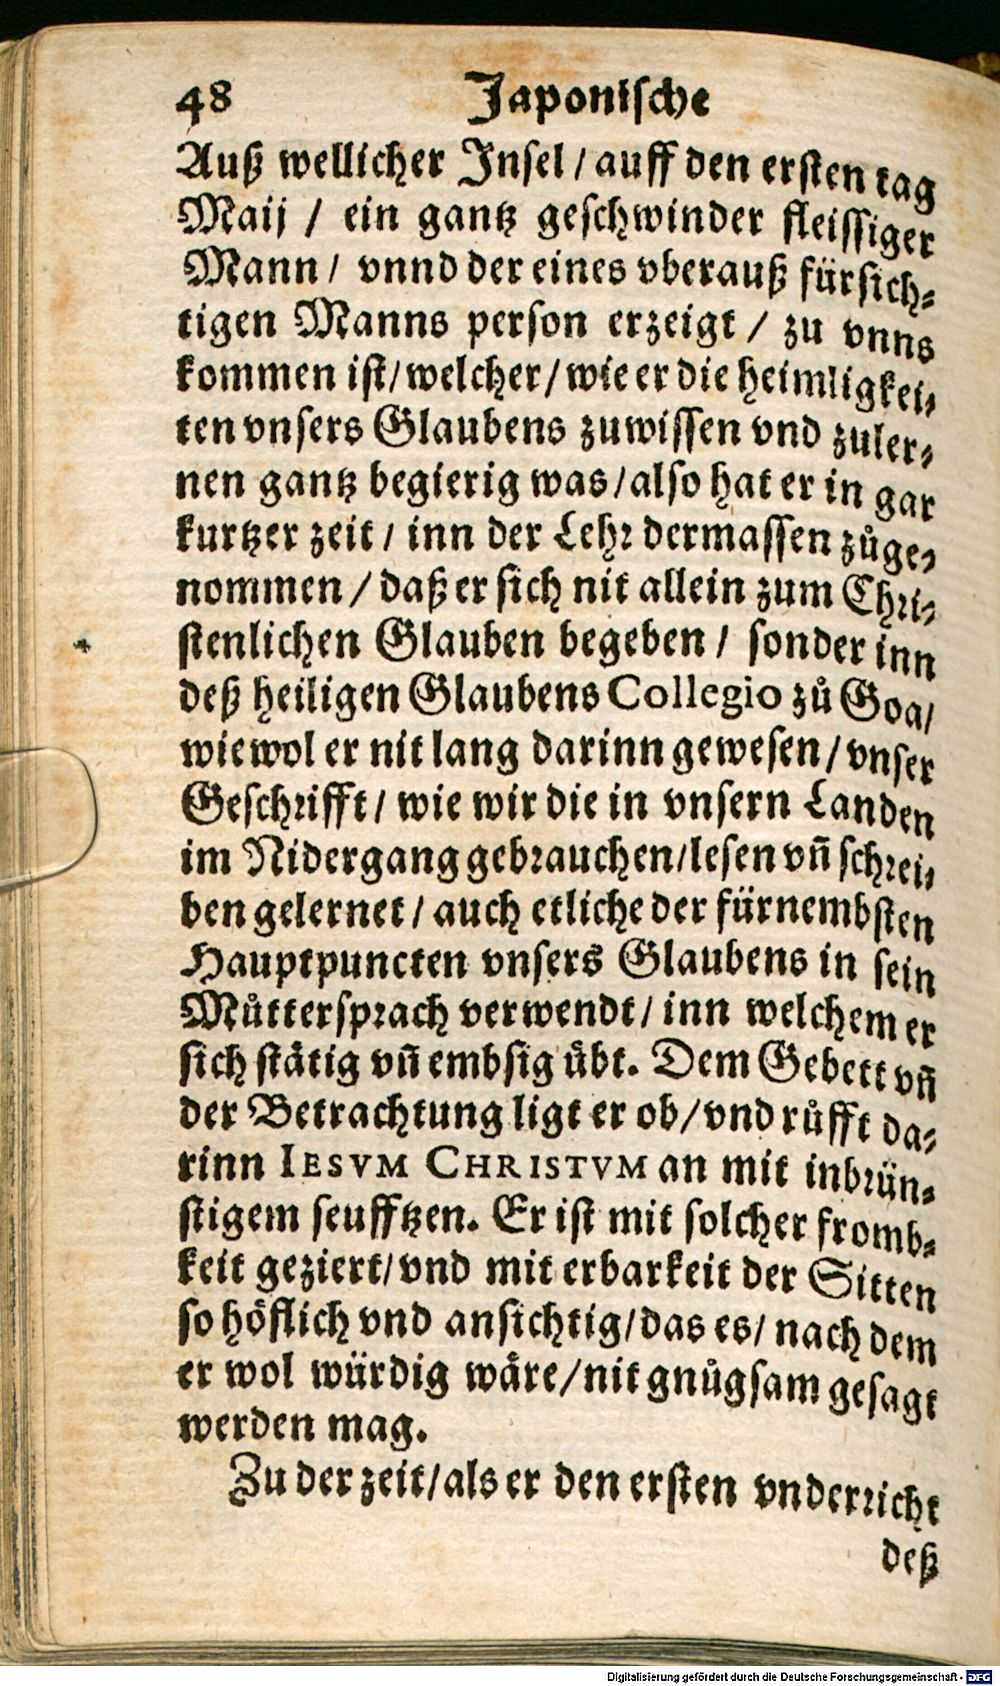 48 Japonische
Auß wellicher Insel / auff den ersten tag
Maij / ein gantz geschwinder fleissiger
Mann / vnnd der eines vberauß fürsich⸗
tigen Manns person erzeigt / zu vnns
kommen ist / welcher / wie er die heimligkei⸗
ten vnsers Glaubens zuwissen vnd zuler⸗
nen gantz begierig was / also hat er in gar
kurtzer zeit / inn der Lehr dermassen zůge⸗
nommen / daß er sich nit allein zum Chri⸗
stenlichen Glauben begeben / sonder inn
deß heiligen Glaubens Collegio zů Goa /
wiewol er nit lang darinn gewesen / vnser
Geschrifft / wie wir die in vnsern Landen
im Nidergang gebrauchen / lesen vñ schrei⸗
ben gelernet / auch etliche der fürnembsten
Hauptpuncten vnsers Glaubens in sein
Můttersprach verwendt / inn welchem er
sich stätig vñ embsig übt. Dem Gebett vñ
der Betrachtung ligt er ob / vnd růfft da⸗
rinn IESVM CHRISTVM an mit inbrün⸗
stigem seufftzen. Er ist mit solcher fromb⸗
keit geziert / vnd mit erbarkeit der Sitten
so höflich vnd ansichtig / das es / nach dem
er wol würdig wäre / nit gnůgsam gesagt
werden mag.
Zu der zeit / als er den ersten vnderricht
deß
Digitalisierung gefördert durch die Deutsche Forschungsgemeinschaft - DFG